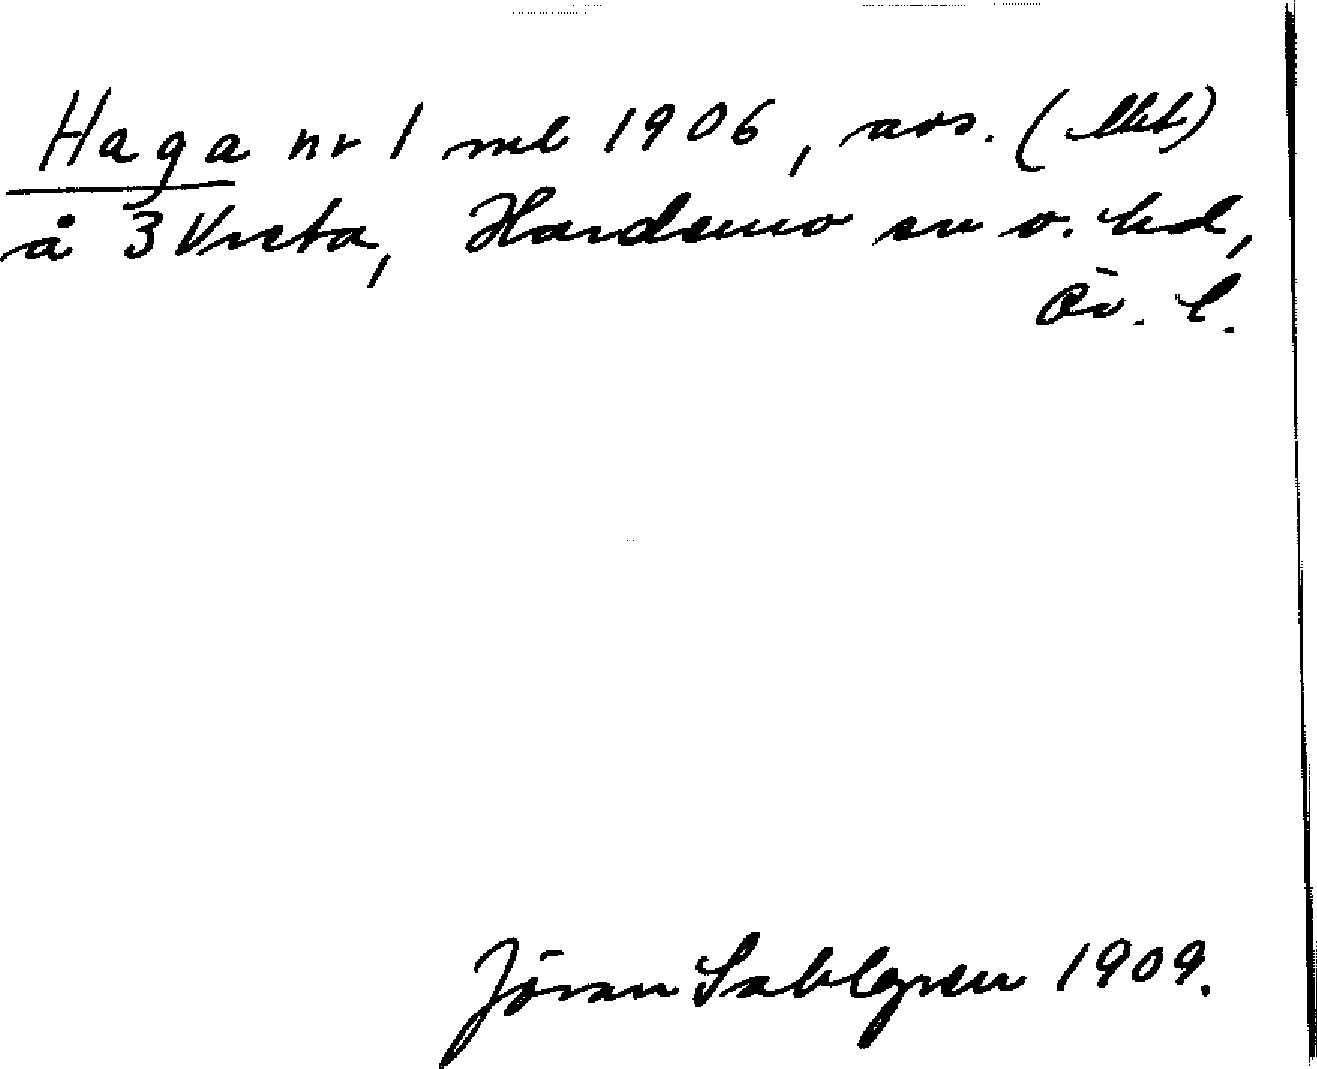 Haga nr 1 ml 1906, avs. (lht)
å 3 Vreta, Hardemo sn o. hd,
Ör. l.
Jöran Sahlgren 1909.